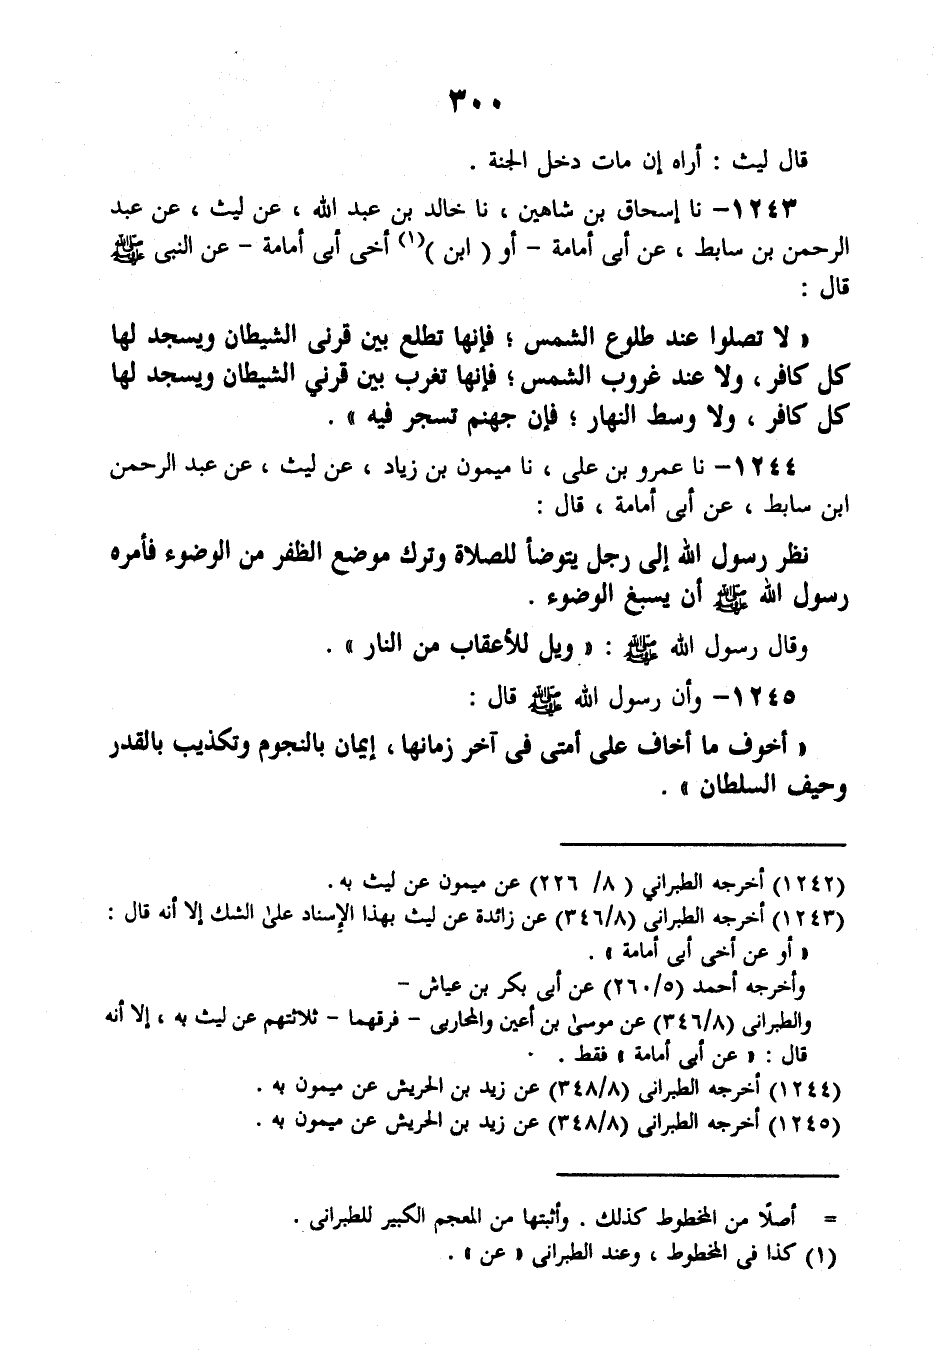 ٣٠٠
قال ليث : أراه إن مات دخل الجنة .
١٢٤٣ – نا إسحاق بن شاهين ، نا خالد بن عبد الله ، عن ليث ، عن عبد
الرحمن بن سابط ، عن أبى أمامة – أو ( ابن )(١) أخى أبى أمامة – عن النبى ﷺ
قال :
« لا تصلوا عند طلوع الشمس ؛ فإنها تطلع بين قرنى الشيطان ويسجد لها
كل كافر ، ولا عند غروب الشمس ؛ فإنها تغرب بين قرني الشيطان ويسجد لها
كل كافر ، ولا وسط النهار ؛ فإن جهنم تسجر فيه » .
١٢٤٤ – نا عمرو بن على ، نا ميمون بن زياد ، عن ليث ، عن عبد الرحمن
ابن سابط ، عن أبى أمامة ، قال :
نظر رسول الله إلى رجل يتوضأ للصلاة وترك موضع الظفر من الوضوء فأمره
رسول الله ﷺ أن يسبغ الوضوء .
وقال رسول الله ﷺ : « ويل للأعقاب من النار » .
١٢٤٥ – وأن رسول الله ﷺ قال :
« أخوف ما أخاف على أمتى فى آخر زمانها ، إيمان بالنجوم وتكذيب بالقدر
وحيف السلطان » .
(١٢٤٢) أخرجه الطبراني ( ٨/ ٢٢٦) عن ميمون عن ليث به .
(١٢٤٣) أخرجه الطبرانى (٣٤٦/٨) عن زائدة عن ليث بهذا الإسناد علىٰ الشك إلا أنه قال :
« أو عن أخى أبى أمامة » .
وأخرجه أحمد (٢٦٠/٥) عن أبى بكر بن عياش –
والطبرانى (٣٤٦/٨) عن موسىٰ بن أعين والمحاربى – فرقهما – ثلاثتهم عن ليث به ، إلا أنه
قال : « عن أبى أمامة » فقط .
(١٢٤٤) أخرجه الطبرانى (٣٤٨/٨) عن زيد بن الحريش عن ميمون به .
(١٢٤٥) أخرجه الطبرانى (٣٤٨/٨) عن زيد بن الحريش عن ميمون به .
= أصلًا من المخطوط كذلك . وأثبتها من المعجم الكبير للطبرانى .
(١) كذا فى المخطوط ، وعند الطبرانى « عن » .